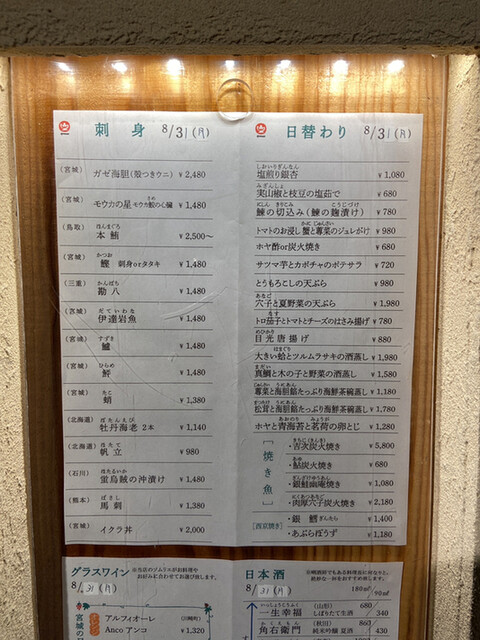 刺身 8/31(月)
(宮城) ガゼ海胆(殻つきウニ) ¥2,480
(宮城) モウカの星 モウカ鮫の心臓 ¥1,480
(鳥取) 本鮪 ¥2,500〜
(宮城) 鰹 刺身orタタキ ¥1,480
(三重) 勘八 ¥1,480
(宮城) 伊達岩魚 ¥1,480
(宮城) 鱸 ¥1,480
(宮城) ¥1,480
(宮城) 蛸 ¥1,380
(北海道) 牡丹海老 2本 ¥1,140
(北海道) 帆立 ¥980
(石川) 蛍烏賊の沖漬け ¥1,480
(熊本) 馬刺 ¥1,380
(宮城) イクラ丼 ¥2,000
日替わり 8/31(月)
塩煎り銀杏 ¥1,080
実山椒と枝豆の塩茹で ¥680
鰊の切込み(鰊の麹漬け) ¥780
トマトのお浸し 蟹と蓴菜のジュレがけ ¥980
ホヤ酢or炭火焼き ¥680
サツマ芋とカボチャのポテサラ ¥720
とうもろこしの天ぷら ¥980
穴子と夏野菜の天ぷら ¥1,980
トロ茄子とトマトとチーズのはさみ揚げ ¥780
目光唐揚げ ¥880
大きい蛤とツルムラサキの酒蒸し ¥1,980
真鯛と木の子と野菜の酒蒸し ¥1,580
蓴菜と海胆餡たっぷり海鮮茶碗蒸し ¥1,180
松茸と海胆餡たっぷり海鮮茶碗蒸し ¥1,780
ホヤと青海苔と茗荷の卵とじ ¥1,280
[焼き魚]
・吉次炭火焼き ¥5,800
・鮎炭火焼き ¥680
・銀鮭幽庵焼き ¥1,080
・肉厚穴子炭火焼き ¥2,180
[西京焼き]
・銀鱈 ¥1,480
・あぶらぼうず ¥1,180
グラスワイン ※当店のソムリエがお料理や
お好みに合わせてお選び致します。
8/31(月)
宮城の
アルフィオーレ
Anco アンコ (川崎町) ¥1,320
日本酒
8/31(月) 180㎖/90㎖
一生幸福 (山形) しぼりたて生酒 680/340
角右衛門 (秋田) 純米吟醸 生酒 860/430